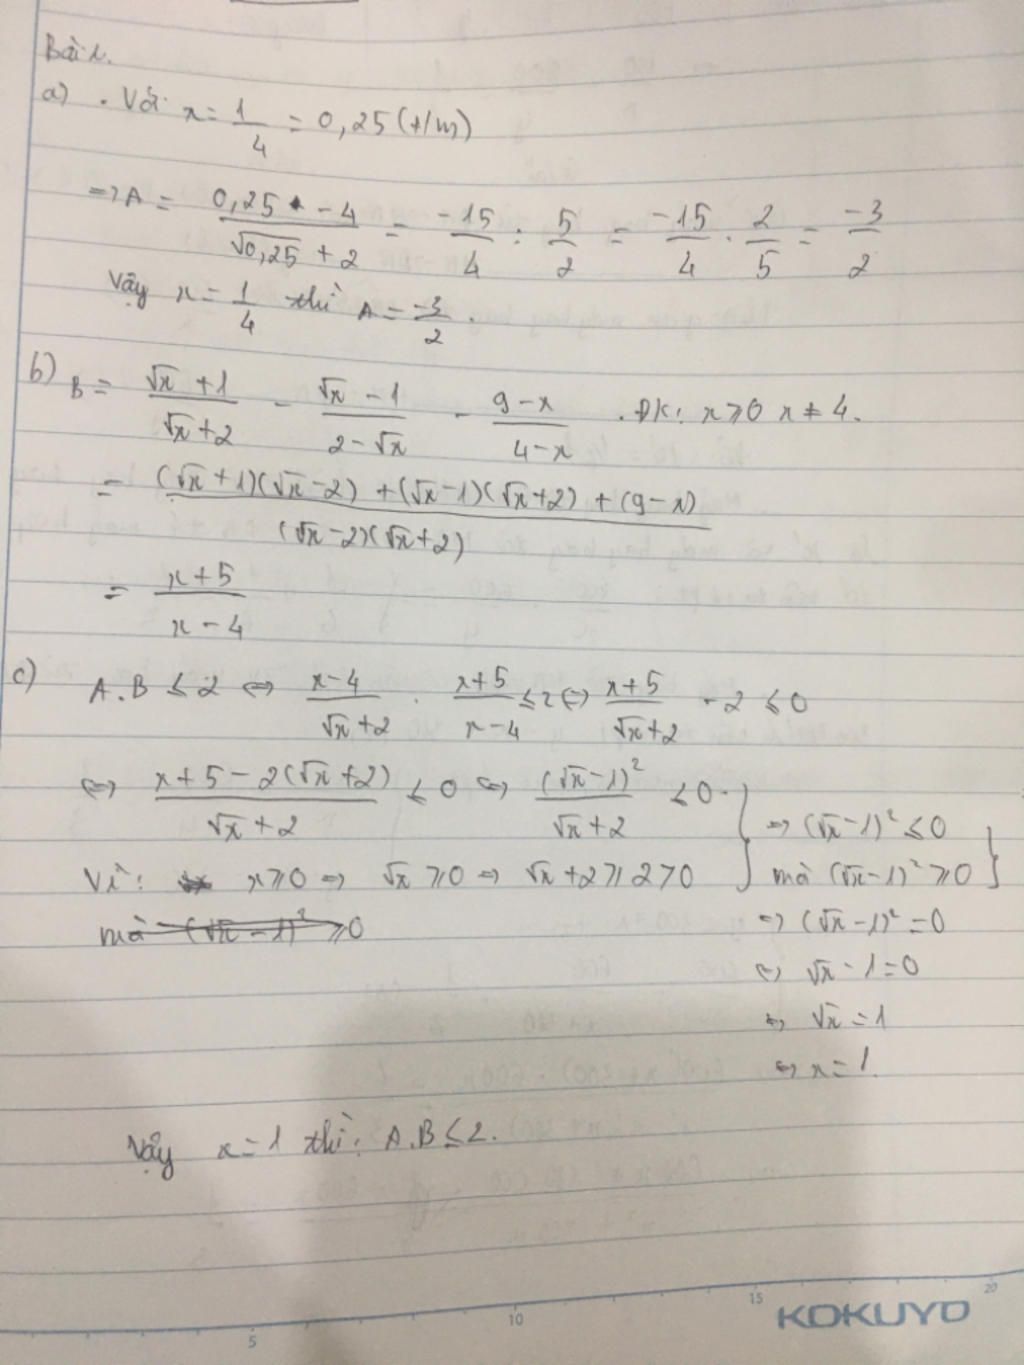 Bài 1.
a) . Với x = 1/4 = 0,25 (t/m)
=> A = (0,25 - 4)/(√0,25 + 2) = -15/4 : 5/2 = -15/4 . 2/5 = -3/2
Vậy x = 1/4 thì A = -3/2.
b) B = (√x + 1)/(√x + 2) - (√x - 1)/(2 - √x) - (9 - x)/(4 - x) . ĐK: x ≥ 0 x ≠ 4.
= ((√x + 1)(√x - 2) + (√x - 1)(√x + 2) + (9 - x))/((√x - 2)(√x + 2))
= (x + 5)/(x - 4)
c) A.B ≤ 2 ⇔ (x - 4)/(√x + 2) . (x + 5)/(x - 4) ≤ 2 ⇔ (x + 5)/(√x + 2) - 2 ≤ 0
⇔ (x + 5 - 2(√x + 2))/(√x + 2) ≤ 0 ⇔ (√x - 1)²/(√x + 2) ≤ 0.
Vì: x ≥ 0 => √x ≥ 0 => √x + 2 ≥ 2 > 0
mà (√x - 1)² ≥ 0
=> (√x - 1)² ≤ 0
mà (√x - 1)² ≥ 0
=> (√x - 1)² = 0
⇔ √x - 1 = 0
⇔ √x = 1
⇔ x = 1.
Vậy x = 1 thì: A.B ≤ 2.
5 10 15 20
KOKUYO